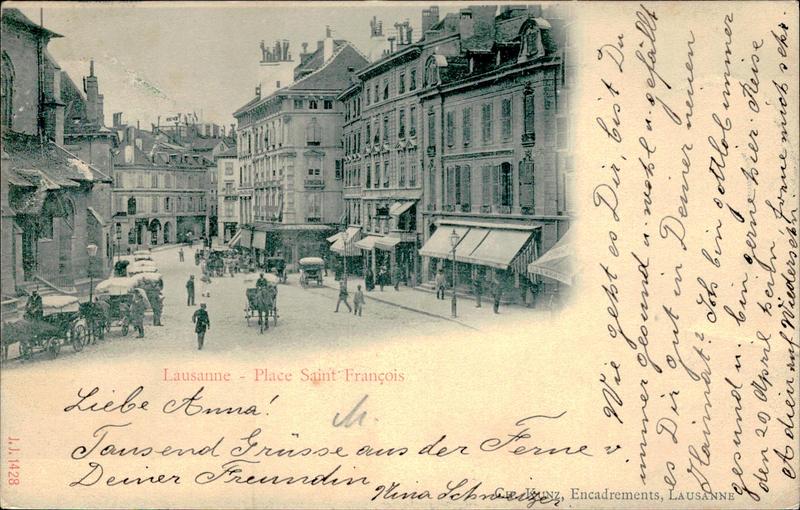 Lausanne - Place Saint François
Liebe Anna!
Tausend Grüsse aus der Ferne v.
Deiner Freundin
Nina Schweizer
KUNZ, Encadrements, LAUSANNE
J. J. 1428
Wie geht es Dir, bist Du
immer gesund u. wohl u. gefällt
es Dir gut in Deiner neuen
Haimat? Ich bin gottlob immer
gesund u. bin gerne hier. Reise
den 20 April heim freue mich sehr.
Adieu auf Wiedersehn